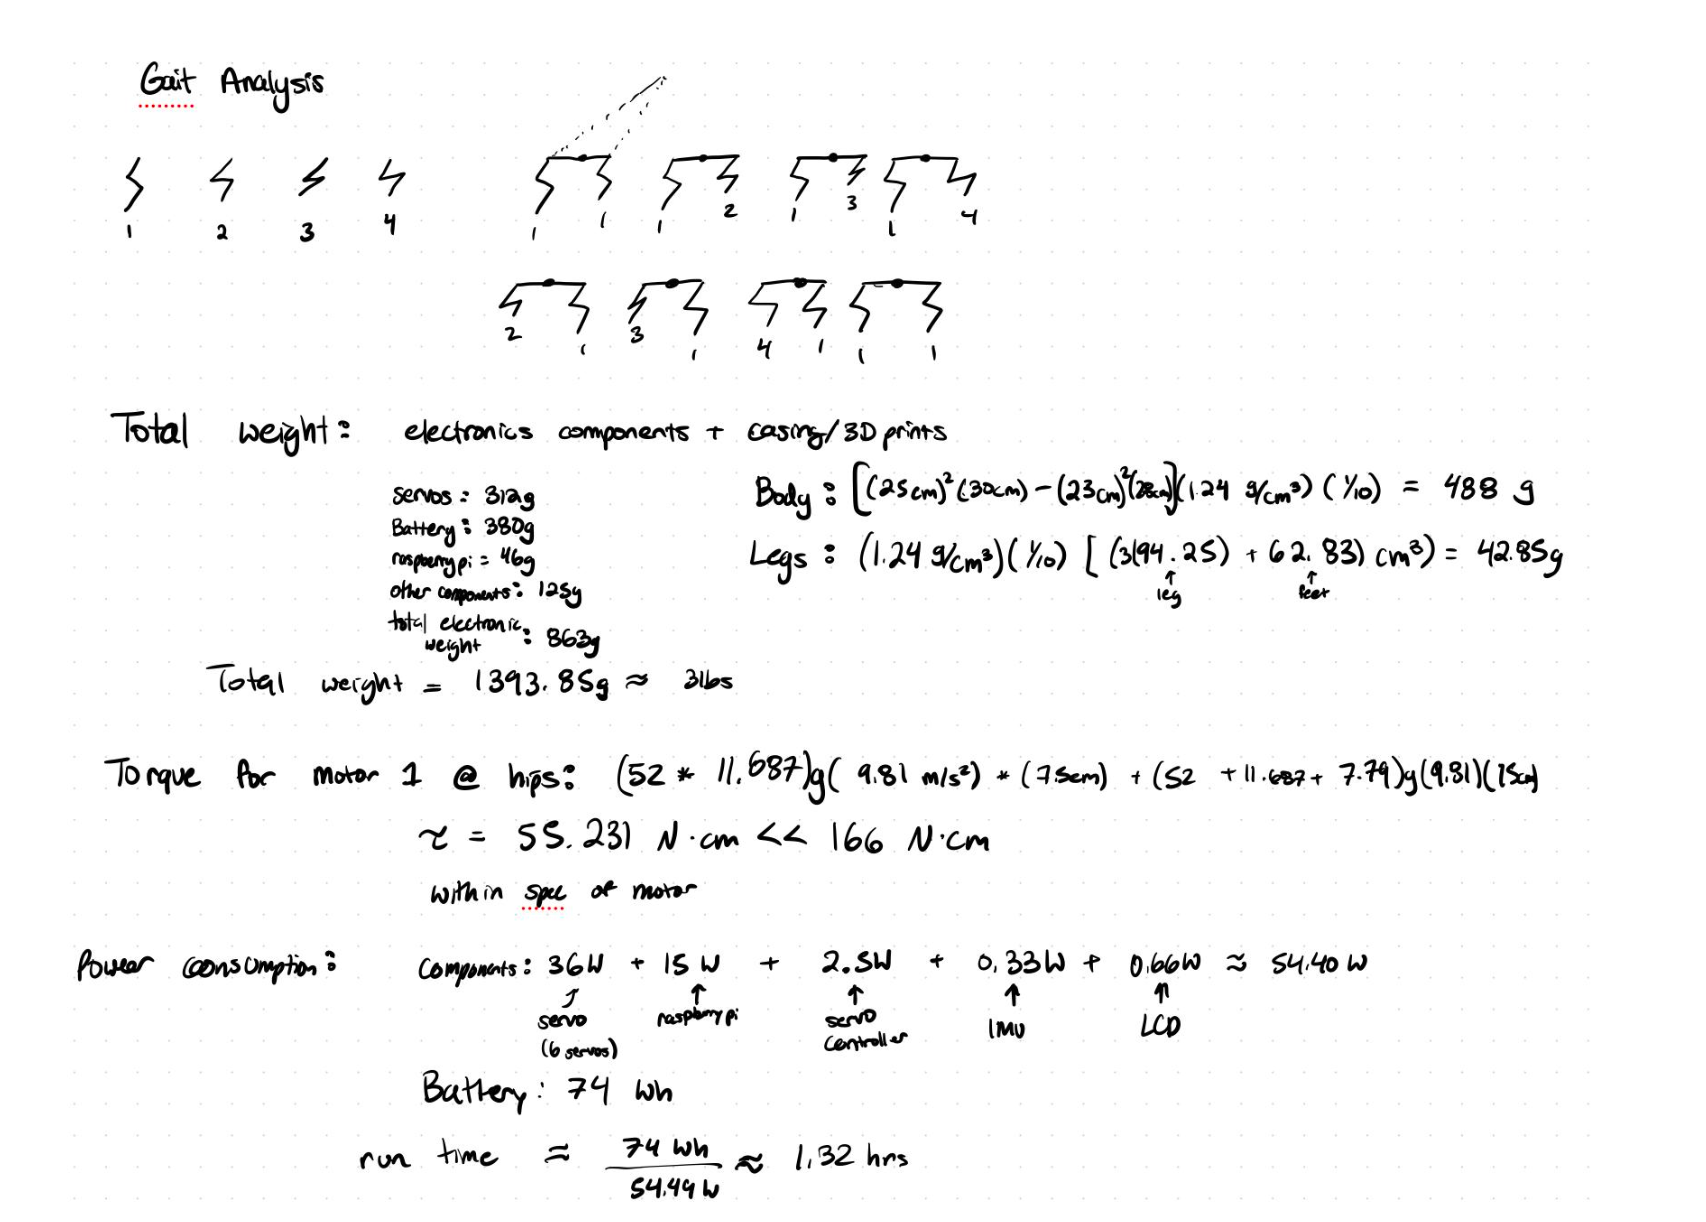 Gait Analysis
1 2 3 4
1 1 1 2 1 3 1 4
2 1 3 1 4 1 1 1
Total weight: electronics components + casing/3D prints
servos: 312g
Battery: 380g
raspberry pi = 46g
other components: 125g
total electronic weight: 863g
Body: [(25cm)²(30cm) - (23cm)²(28cm)](1.24 g/cm³) (1/10) = 488 g
Legs: (1.24 g/cm³)(1/10) [(3(94.25) + 62.83) cm³) = 42.85g
leg feet
Total weight = 1393.85g ≈ 3lbs
Torque for motor 1 @ hips: (52 * 11.687)g( 9.81 m/s²) * (7.5cm) + (52 + 11.687 + 7.79)g(9.81)(15cm)
τ = 55.231 N·cm << 166 N·cm
within spec of motor
Power consumption: Components: 36W + 15 W + 2.5W + 0.33W + 0.66W ≈ 54.40 W
servo (6 servos) raspberry pi servo controller IMU LCD
Battery: 74 Wh
run time ≈ 74 Wh / 54.49 W ≈ 1.32 hrs